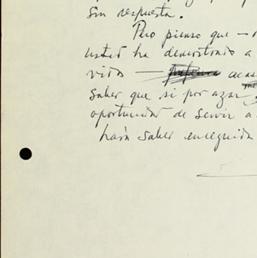 sin respuesta.
Pero pienso que —
usted ha demostrado a
vida —
saber que si por azar
oportunidad de servir a
hará saber enseguida